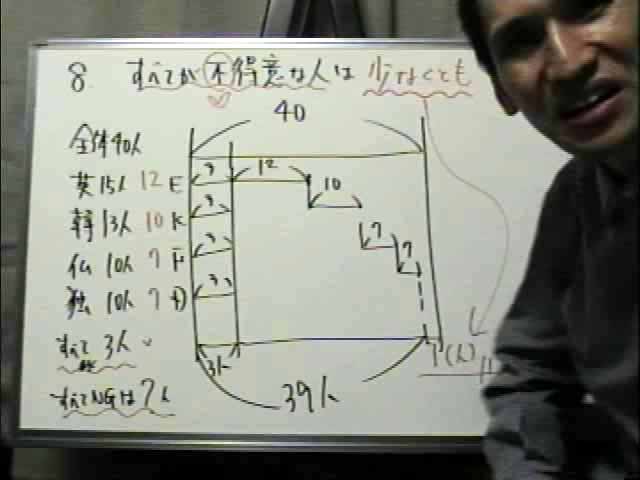 8. すべてが不得意な人は 少なくとも
40
全体40人
英15人 12 E 3 12
韓13人 10 K 3 10
仏10人 7 F 3 7
独10人 7 D 3 7
すべて 3人
3人
1(人)
すべてNGは?人
39人